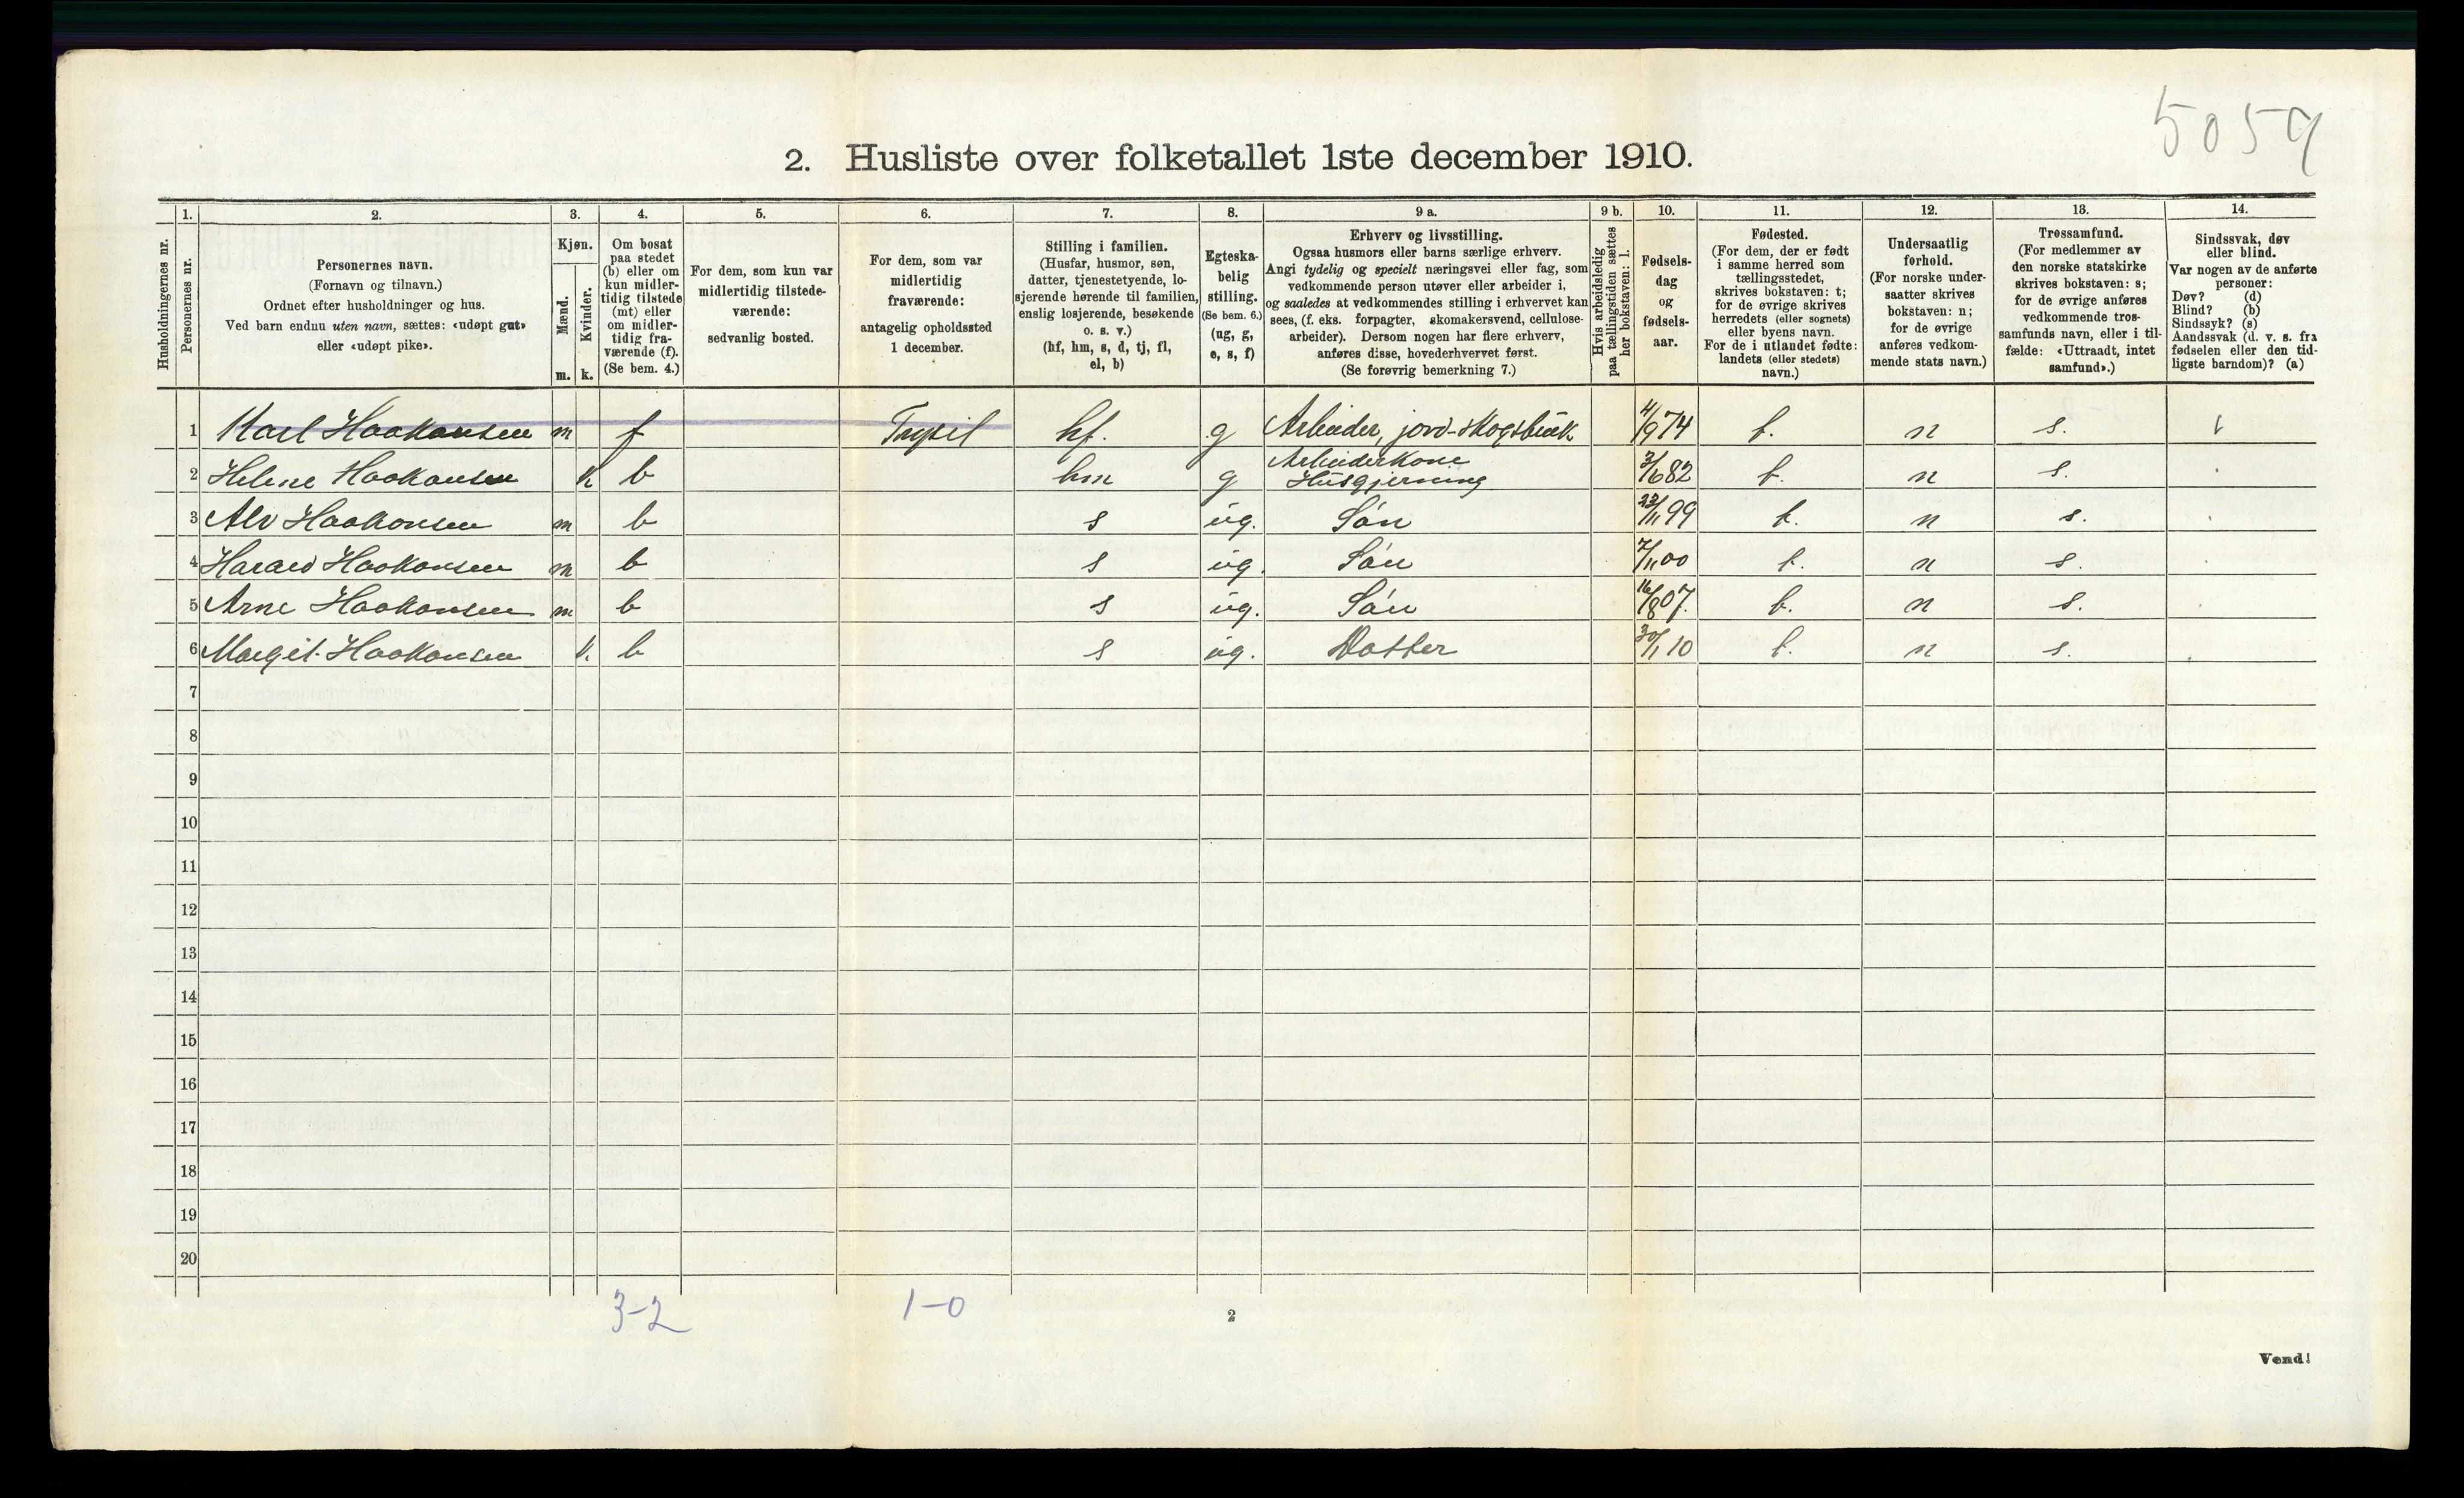 5059
2. Husliste over folketallet 1ste december 1910.
Husholdningernes nr.
1.
Personernes nr.
2.
Personernes navn.
(Fornavn og tilnavn.)
Ordnet efter husholdninger og hus.
Ved barn endnu uten navn, sættes: «udøpt gut»
eller «udøpt pike».
3.
Kjøn.
Mænd.
m.
Kvinder.
k.
4.
Om bosat
paa stedet
(b) eller om
kun midler-
tidig tilstede
(mt) eller
om midler-
tidig fra-
værende (f).
(Se bem. 4.)
5.
For dem, som kun var
midlertidig tilstede-
værende:
sedvanlig bosted.
6.
For dem, som var
midlertidig
fraværende:
antagelig opholdssted
1 december.
7.
Stilling i familien.
(Husfar, husmor, søn,
datter, tjenestetyende, lo-
sjerende hørende til familien,
enslig losjerende, besøkende
o. s. v.)
(hf, hm, s, d, tj, fl,
el, b)
8.
Egteska-
belig
stilling.
(Se bem. 6.)
(ug, g,
e, s, f)
9 a.
Erhverv og livsstilling.
Ogsaa husmors eller barns særlige erhverv.
Angi tydelig og specielt næringsvei eller fag, som
vedkommende person utøver eller arbeider i,
og saaledes at vedkommendes stilling i erhvervet kan
sees, (f. eks. forpagter, skomakersvend, cellulose-
arbeider). Dersom nogen har flere erhverv,
anføres disse, hovederhvervet først.
(Se forøvrig bemerkning 7.)
9 b.
Hvis arbeidsledig
paa tællingstiden sættes
her bokstaven: l.
10.
Fødsels-
dag
og
fødsels-
aar.
11.
Fødested.
(For dem, der er født
i samme herred som
tællingsstedet,
skrives bokstaven: t;
for de øvrige skrives
herredets (eller sognets)
eller byens navn.
For de i utlandet fødte:
landets (eller stedets)
navn.)
12.
Undersaatlig
forhold.
(For norske under-
saatter skrives
bokstaven: n;
for de øvrige
anføres vedkom-
mende stats navn.)
13.
Trossamfund.
(For medlemmer av
den norske statskirke
skrives bokstaven: s;
for de øvrige anføres
vedkommende tros-
samfunds navn, eller i til-
fælde: «Uttraadt, intet
samfund».)
14.
Sindssvak, døv
eller blind.
Var nogen av de anførte
personer:
Døv? (d)
Blind? (b)
Sindssyk? (s)
Aandssvak (d. v. s. fra
fødselen eller den tid-
ligste barndom)? (a)
1 Karl Haakansen m f Trysil hf. g Arbeider, jord-skogsbruk 4/9 74 t. n s.
2 Helene Haakansen k b hm g Arbeiderkone
Husgjerning 3/6 82 t. n s.
3 Alv Haakonsen m b s ug. Søn 23/11 99 t. n s.
4 Harald Haakansen m b s ug. Søn 7/11 00 t. n s.
5 Arne Haakansen m b s ug. Søn 16/8 07. t. n s.
6 Margit Haakansen k. b s ug. Datter 30/1 10 t. n s.
7
8
9
10
11
12
13
14
15
16
17
18
19
20
3-2 1-0
2
Vend!